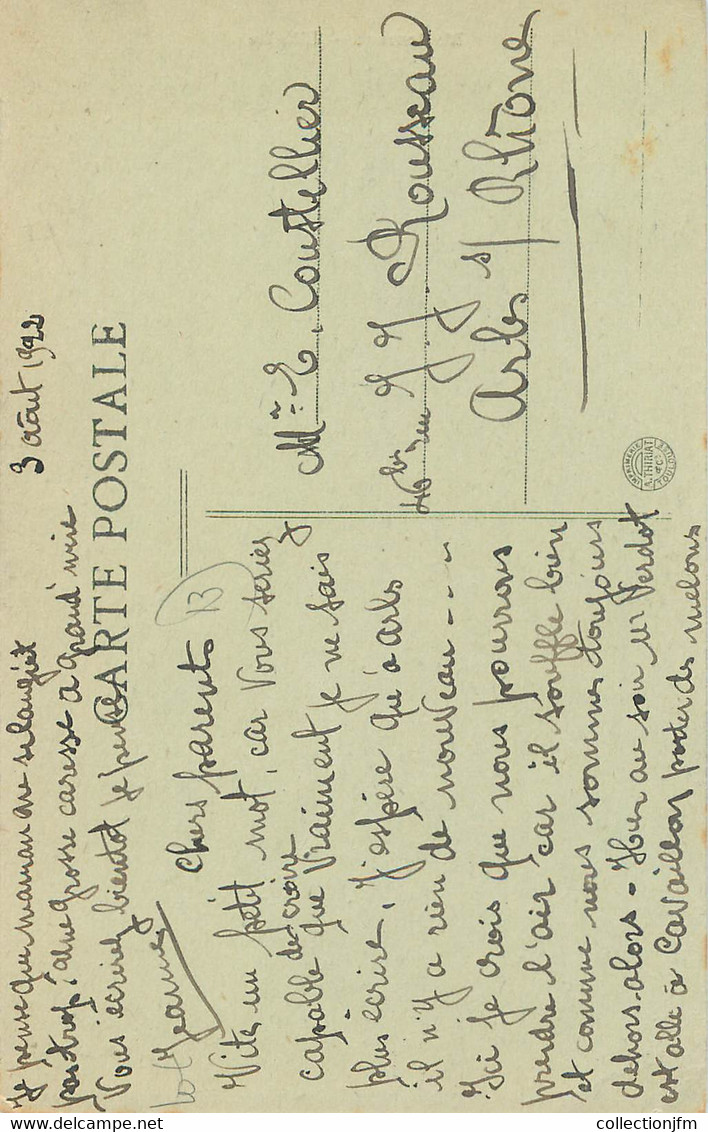 3 août 1922
CARTE POSTALE
Chers parents
13
Vite, un petit mot, car vous seriez
capable de croire que vraiment je ne sais
plus écrire, j'espère qu'à Arles
il n'y a rien de nouveau - - -
Ici je crois que nous pourrons
prendre l'air car il souffle bien
et comme nous sommes toujours
dehors alors - Hier au soir Mr Verdot
est allé à Cavaillon porter des melons
Je pense que maman ne se languit
pas trop. Une grosse caresse à grand'mère
Vous écrirez bientôt je pense
Jeanne
Mr E. Coustellier
bis rue J J Rousseau
Arles s/ Rhône
IMPRIMERIE
A. THIRIAT
& Cie
TOULOUSE
collectionjfm